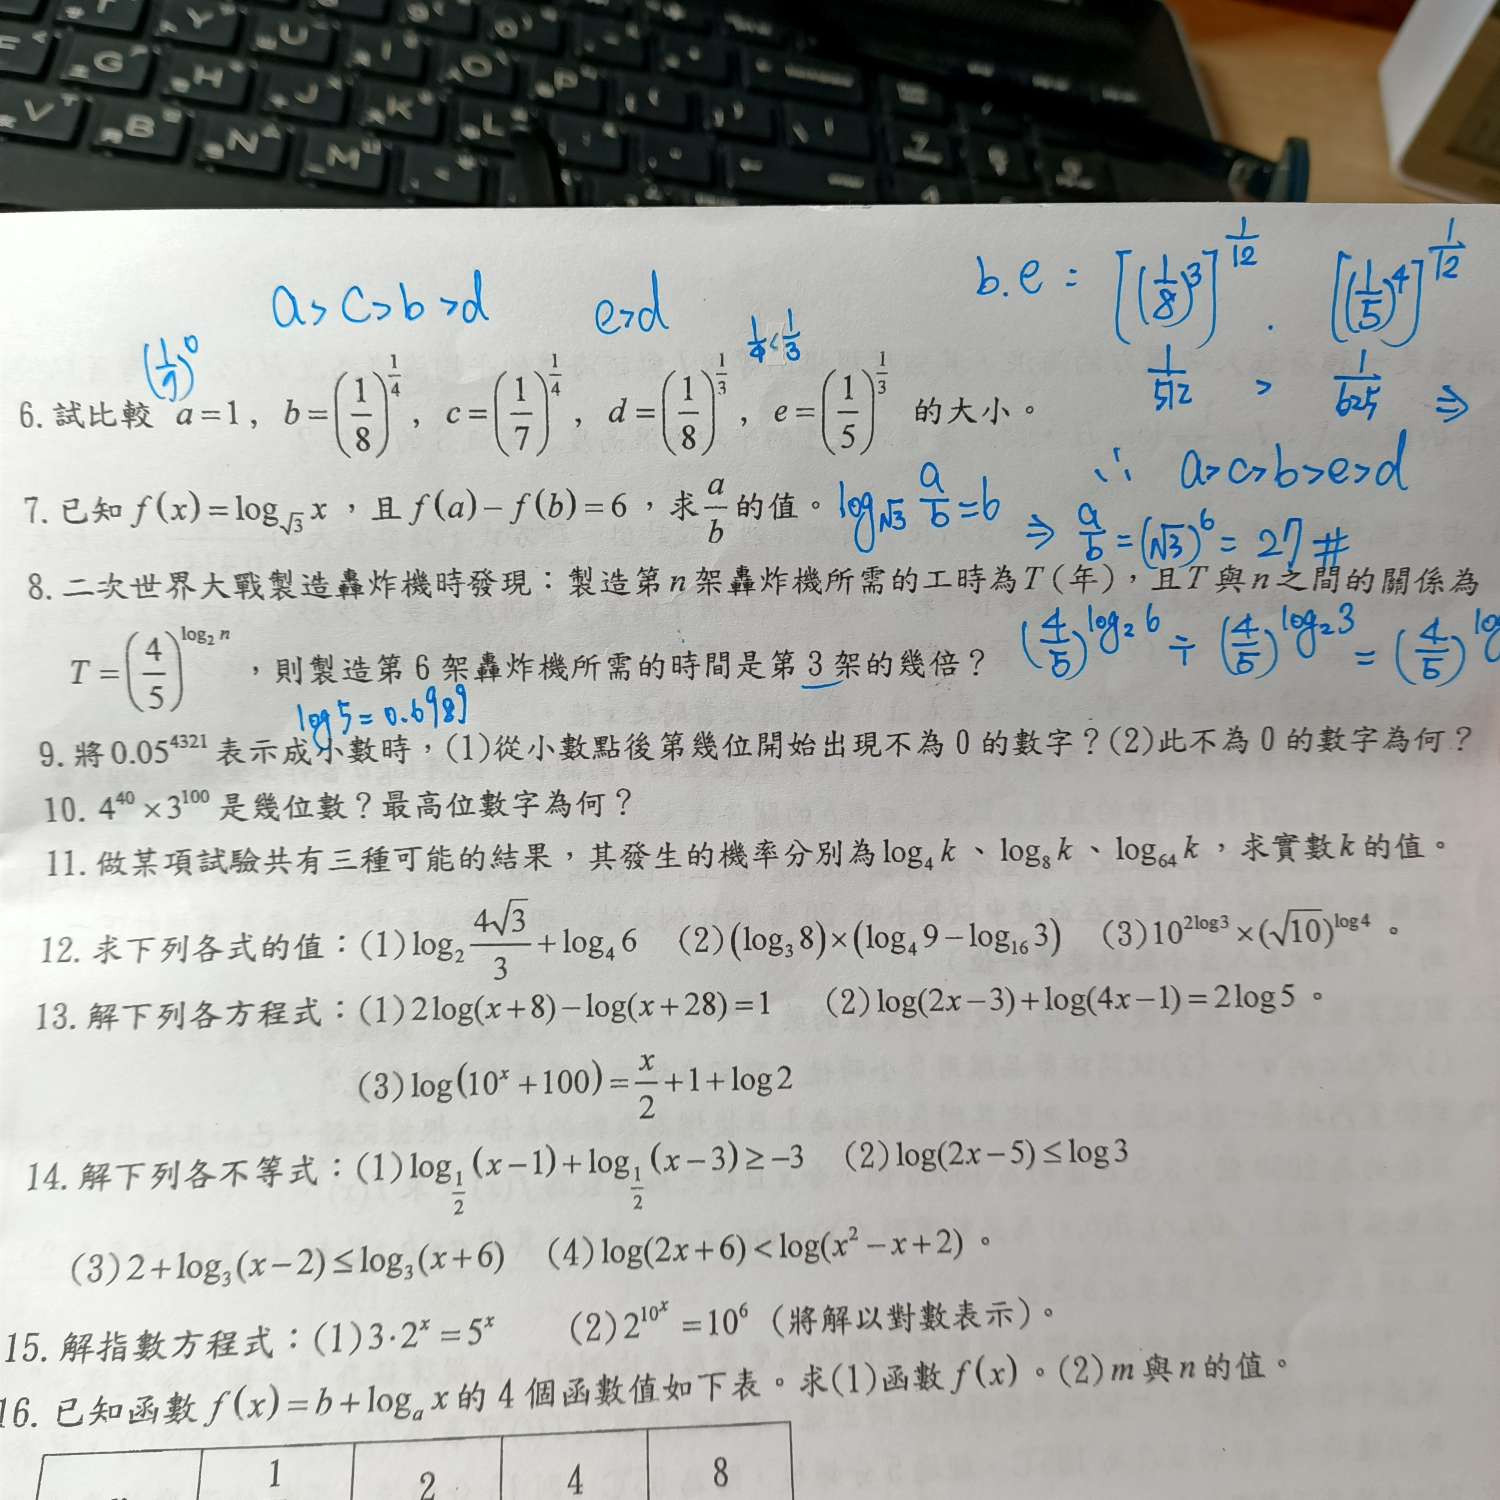 a > c > b > d    e > d    b. e = [(1/8)^3]^(1/12) . [(1/5)^4]^(1/12)
(1/7)^0    1/4 < 1/3    1/512 > 1/625 ⇒
6. 試比較 a=1, b=(1/8)^(1/4), c=(1/7)^(1/4), d=(1/8)^(1/3), e=(1/5)^(1/3) 的大小。
∴ a > c > b > e > d
7. 已知 f(x)=log_√3 x,且 f(a)−f(b)=6,求 a/b 的值。 log_√3 a/b = 6 ⇒ a/b = (√3)^6 = 27 #
8. 二次世界大戰製造轟炸機時發現:製造第 n 架轟炸機所需的工時為 T (年),且 T 與 n 之間的關係為
T=(4/5)^(log₂ n),則製造第 6 架轟炸機所需的時間是第 3 架的幾倍? (4/5)^(log₂ 6) ÷ (4/5)^(log₂ 3) = (4/5)^
log 5 = 0.6989
9. 將 0.05^4321 表示成小數時,(1)從小數點後第幾位開始出現不為 0 的數字?(2)此不為 0 的數字為何?
10. 4^40 × 3^100 是幾位數?最高位數字為何?
11. 做某項試驗共有三種可能的結果,其發生的機率分別為 log₄ k、log₈ k、log₆₄ k,求實數 k 的值。
12. 求下列各式的值:(1) log₂ (4√3)/3 + log₄ 6 (2) (log₃ 8)×(log₄ 9 − log₁₆ 3) (3) 10^(2log3) × (√10)^(log4)。
13. 解下列各方程式:(1) 2log(x+8)−log(x+28)=1 (2) log(2x−3)+log(4x−1)=2log5。
(3) log(10^x+100)=x/2+1+log2
14. 解下列各不等式:(1) log_(1/2) (x−1)+log_(1/2) (x−3)≥−3 (2) log(2x−5)≤log3
(3) 2+log₃(x−2)≤log₃(x+6) (4) log(2x+6)<log(x²−x+2)。
15. 解指數方程式:(1) 3·2^x=5^x (2) 2^(10^x)=10^6 (將解以對數表示)。
16. 已知函數 f(x)=b+log_a x 的 4 個函數值如下表。求(1)函數 f(x)。(2) m 與 n 的值。
1 2 4 8